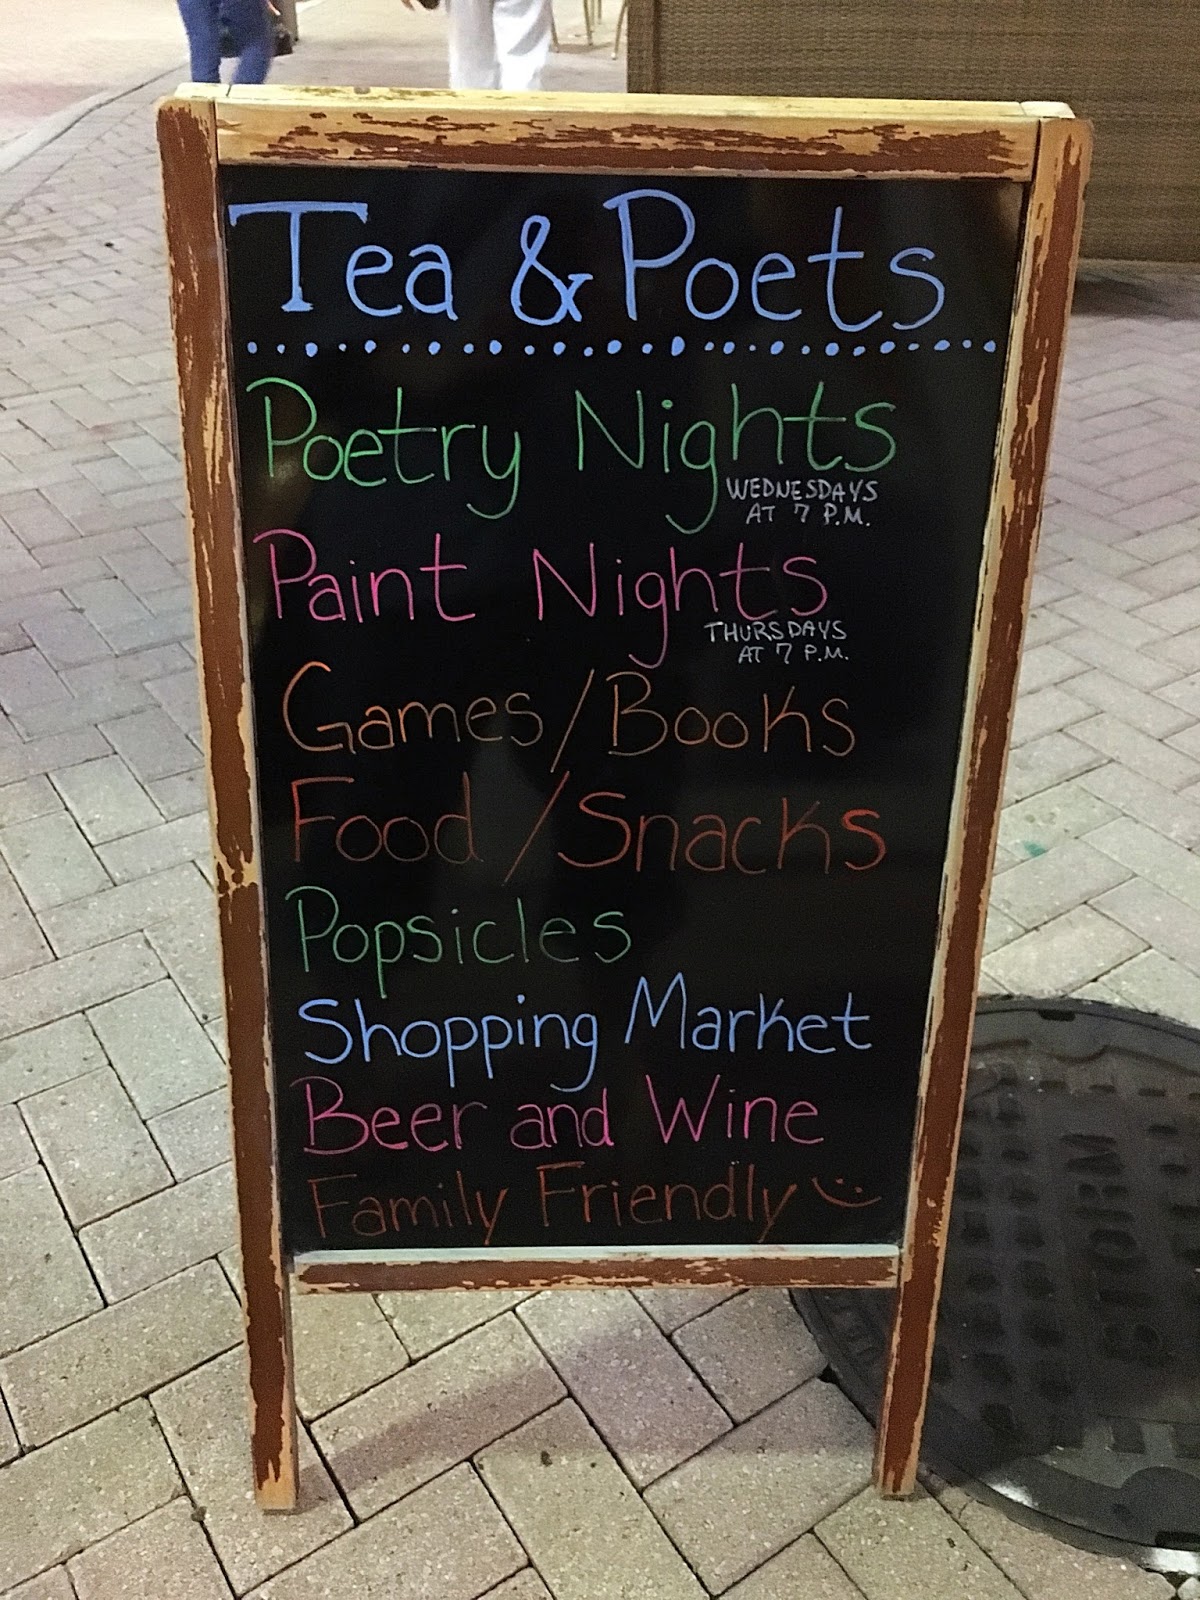 Tea & Poets
Poetry Nights
WEDNESDAYS
AT 7 P.M.
Paint Nights
THURSDAYS
AT 7 P.M.
Games/Books
Food/Snacks
Popsicles
Shopping Market
Beer and Wine
Family Friendly
STORM